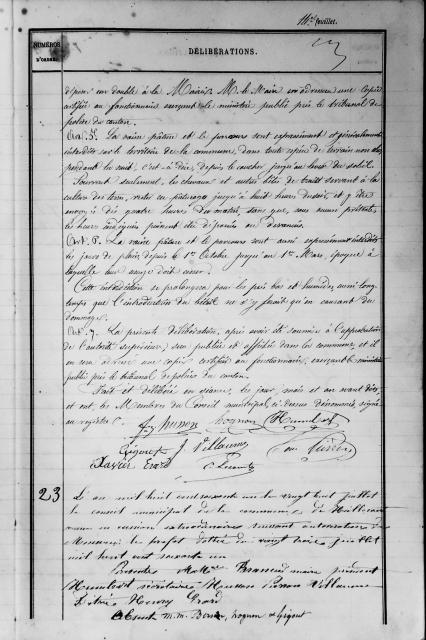 feuillet.
NUMÉROS
D'ORDRE.
DÉLIBÉRATIONS.
son double à la Mairie. M. le Maire en adressera une copie
certifiée au fonctionnaire exerçant le ministère public près le tribunal de
police du canton.
Art. 5. La vaine pâture et le parcours sont expressément et généralement
interdits sur le territoire de la commune, dans toute espèce de terrain non clos
pendant la nuit, c'est-à-dire, depuis le coucher jusqu'au lever du soleil.
Pourront seulement, les chevaux et autres bêtes de trait servant à la
culture des terres, rester en pâturage jusqu'à huit heures du soir, et y être
envoyés dès quatre heures du matin, sans que, sous aucun prétexte,
les heures indiquées puissent être dépassées ou devancées.
Art. 6. La vaine pâture et le parcours sont aussi expressément interdits
les jours de pluie, depuis le 1er Octobre jusqu'au 1er Mars, époque à
laquelle leur usage doit cesser.
Cette interdiction se prolongera pour les prés bas et humides, aussi long-
temps que l'introduction du bétail ne s'y ferait qu'en causant du
dommage.
Art. 7. La présente délibération, après avoir été soumise à l'approbation
de l'autorité supérieure, sera publiée et affichée dans la commune, et il
en sera adressé une copie certifiée au fonctionnaire, exerçant le ministère
public près le tribunal de police du canton.
Fait et délibéré en séance, les jour, mois et an avant dits,
et ont, les Membres du Conseil municipal, ci-dessus dénommés, signé
au registre.
husson hognon Humbert
Gigout J. Villaume Pierson
Xavier Erard
23
L'an mil huit cent soixante un le vingt huit juillet
le conseil municipal de la commune de
réuni en session extraordinaire suivant autorisation de
Monsieur le préfet datée du vingt trois juillet
mil huit cent soixante un
Présents M. maire président
Humbert secrétaire Husson Pierson Villaume
Henry Erard
Absents m.m. hognon et Gigout